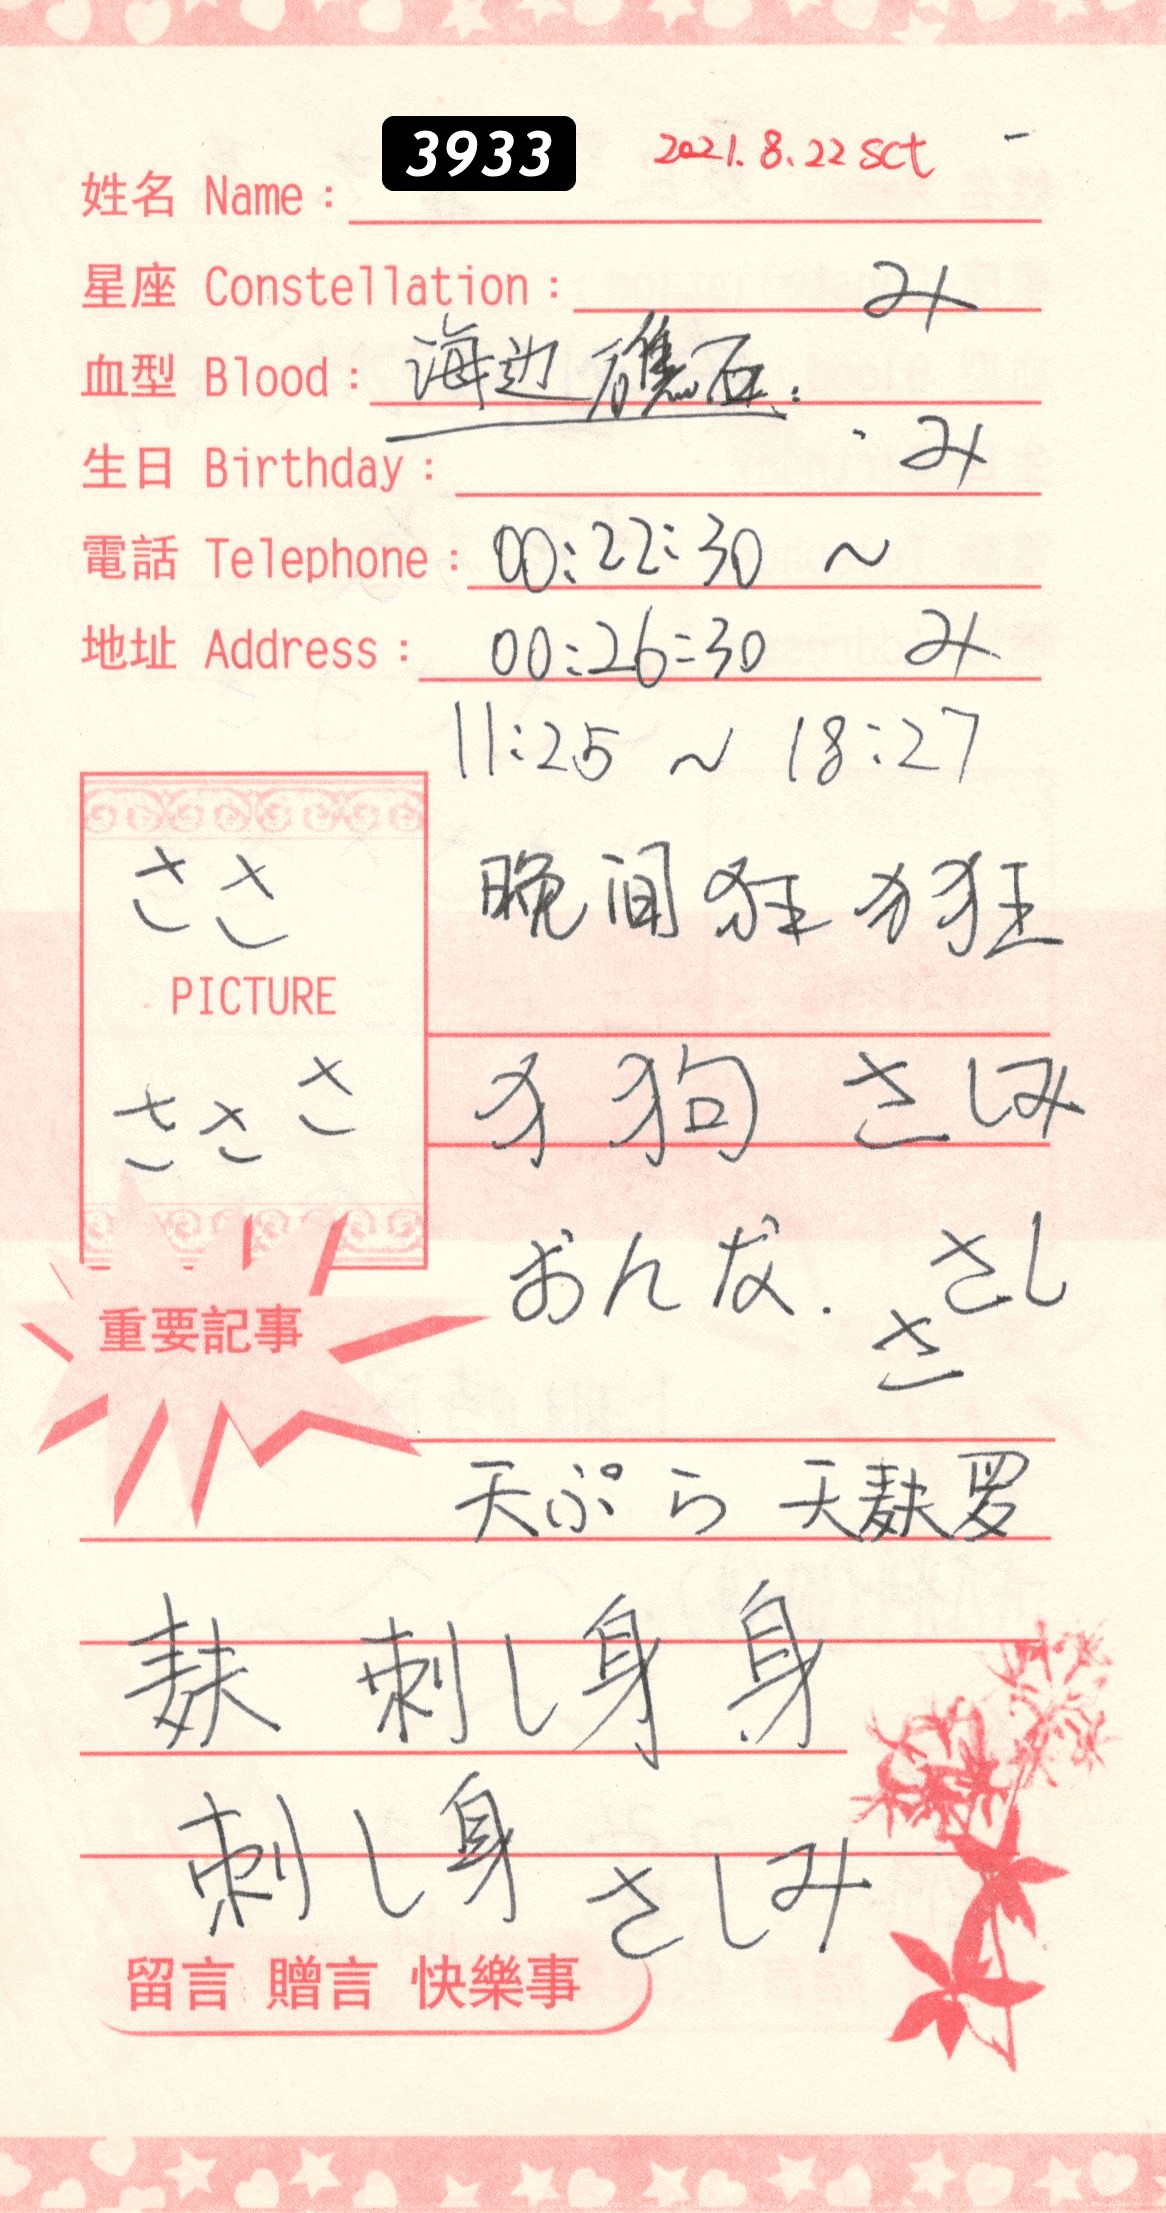 3933 2021.8.22 sct
姓名 Name:
星座 Constellation: み
血型 Blood: 海边 礁石.
生日 Birthday: み
電話 Telephone: 00:22:30 ~
地址 Address: 00:26:30 み
11:25 ~ 18:27
ささ 晚间狂犭狂
PICTURE
さささ 犭狗 さしみ
おんな. さし
さ
重要記事
天ぷら 天麩罗
麩 刺し身 身
刺し身 さしみ
留言 贈言 快樂事